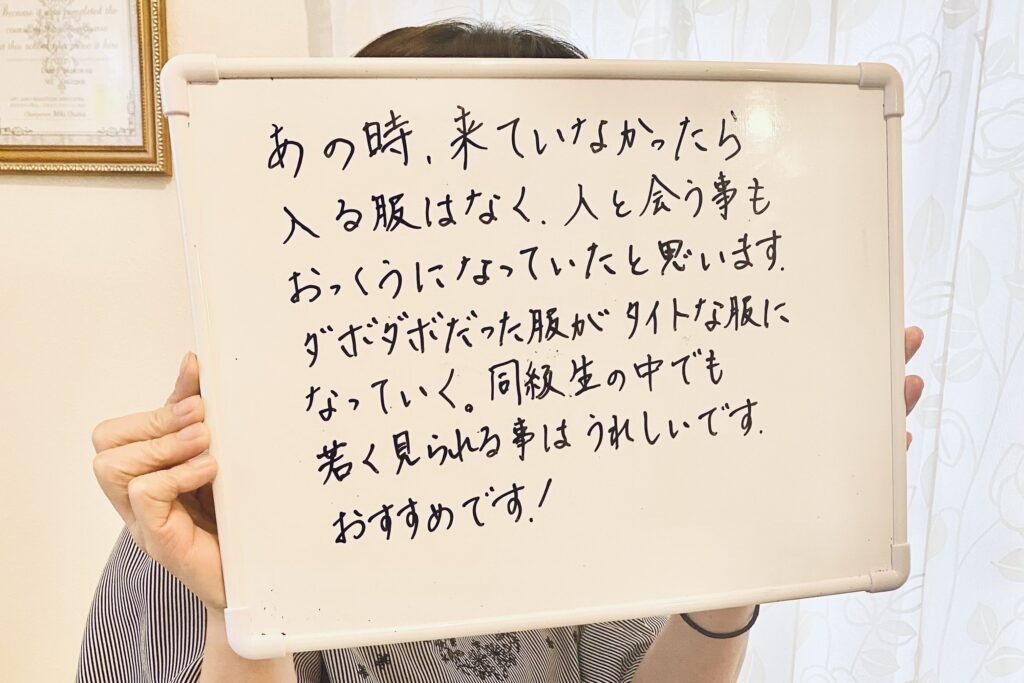 Because it was completed the
あの時、来ていなかったら
入る服はなく、人と会う事も
おっくうになっていたと思います.
ダボダボだった服がタイトな服に
なっていく。同級生の中でも
若く見られる事はうれしいです.
おすすめです!